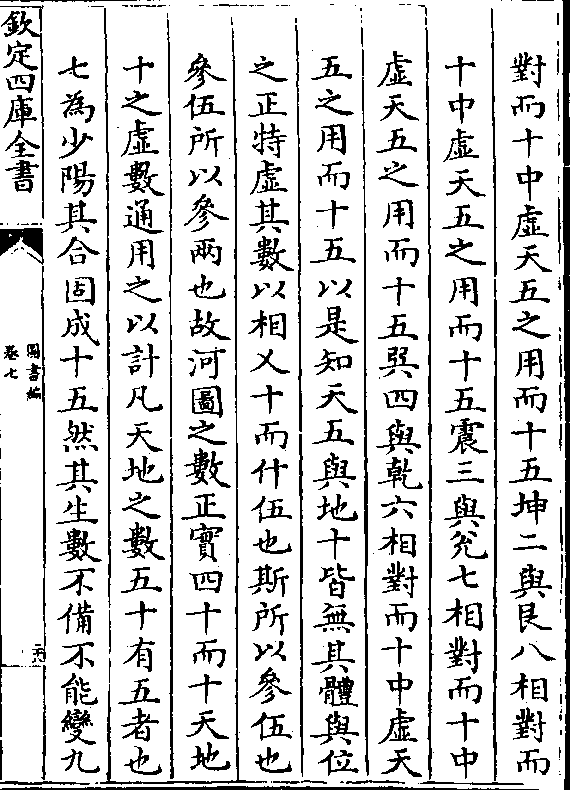 對而十中虛天五之用而十五坤二與艮八相對而
十中虛天五之用而十五震三與兊七相對而十中
虛天五之用而十五巽四與乾六相對而十中虛天
五之用而十五以是知天五與地十皆無其體與位
之正特虛其數以相乂十而什伍也斯所以參伍也
參伍所以參兩也故河圖之數正實四十而十天地
十之虛數通用之以計凡天地之數五十有五者也
七為少陽其合固成十五然其生數不備不能變九
欽定四庫全書
圖書編
卷七